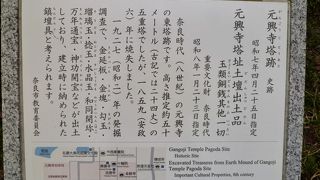 元興寺塔跡 史跡
昭和七年四月二十五日指定
元興寺塔址土壇出土品
玉類銅銭其他一切
重要文化財、奈良時代
昭和八年一月二十三日指定
奈良時代（八世紀）の元興寺
の東塔跡です。高さ推定約五十
メートル（古記では七十二メートル）の
五重塔でしたが、一八五九（安政
六）年に焼失しました。
一九二七（昭和二）年の発掘
調査で、金延板、金塊、勾玉、
瑠璃玉、捻玉、水晶玉、和同開珎、
万年通宝、神功開宝などが出土
しており、建立時に納められた
鎮壇具と考えられます。
奈良市教育委員会
Gangoji Temple Pagoda Site
Historic Site
Excavated Treasures from Earth Mound of Gangoji
Temple Pagoda Site
Important Cultural Properties, 8th century